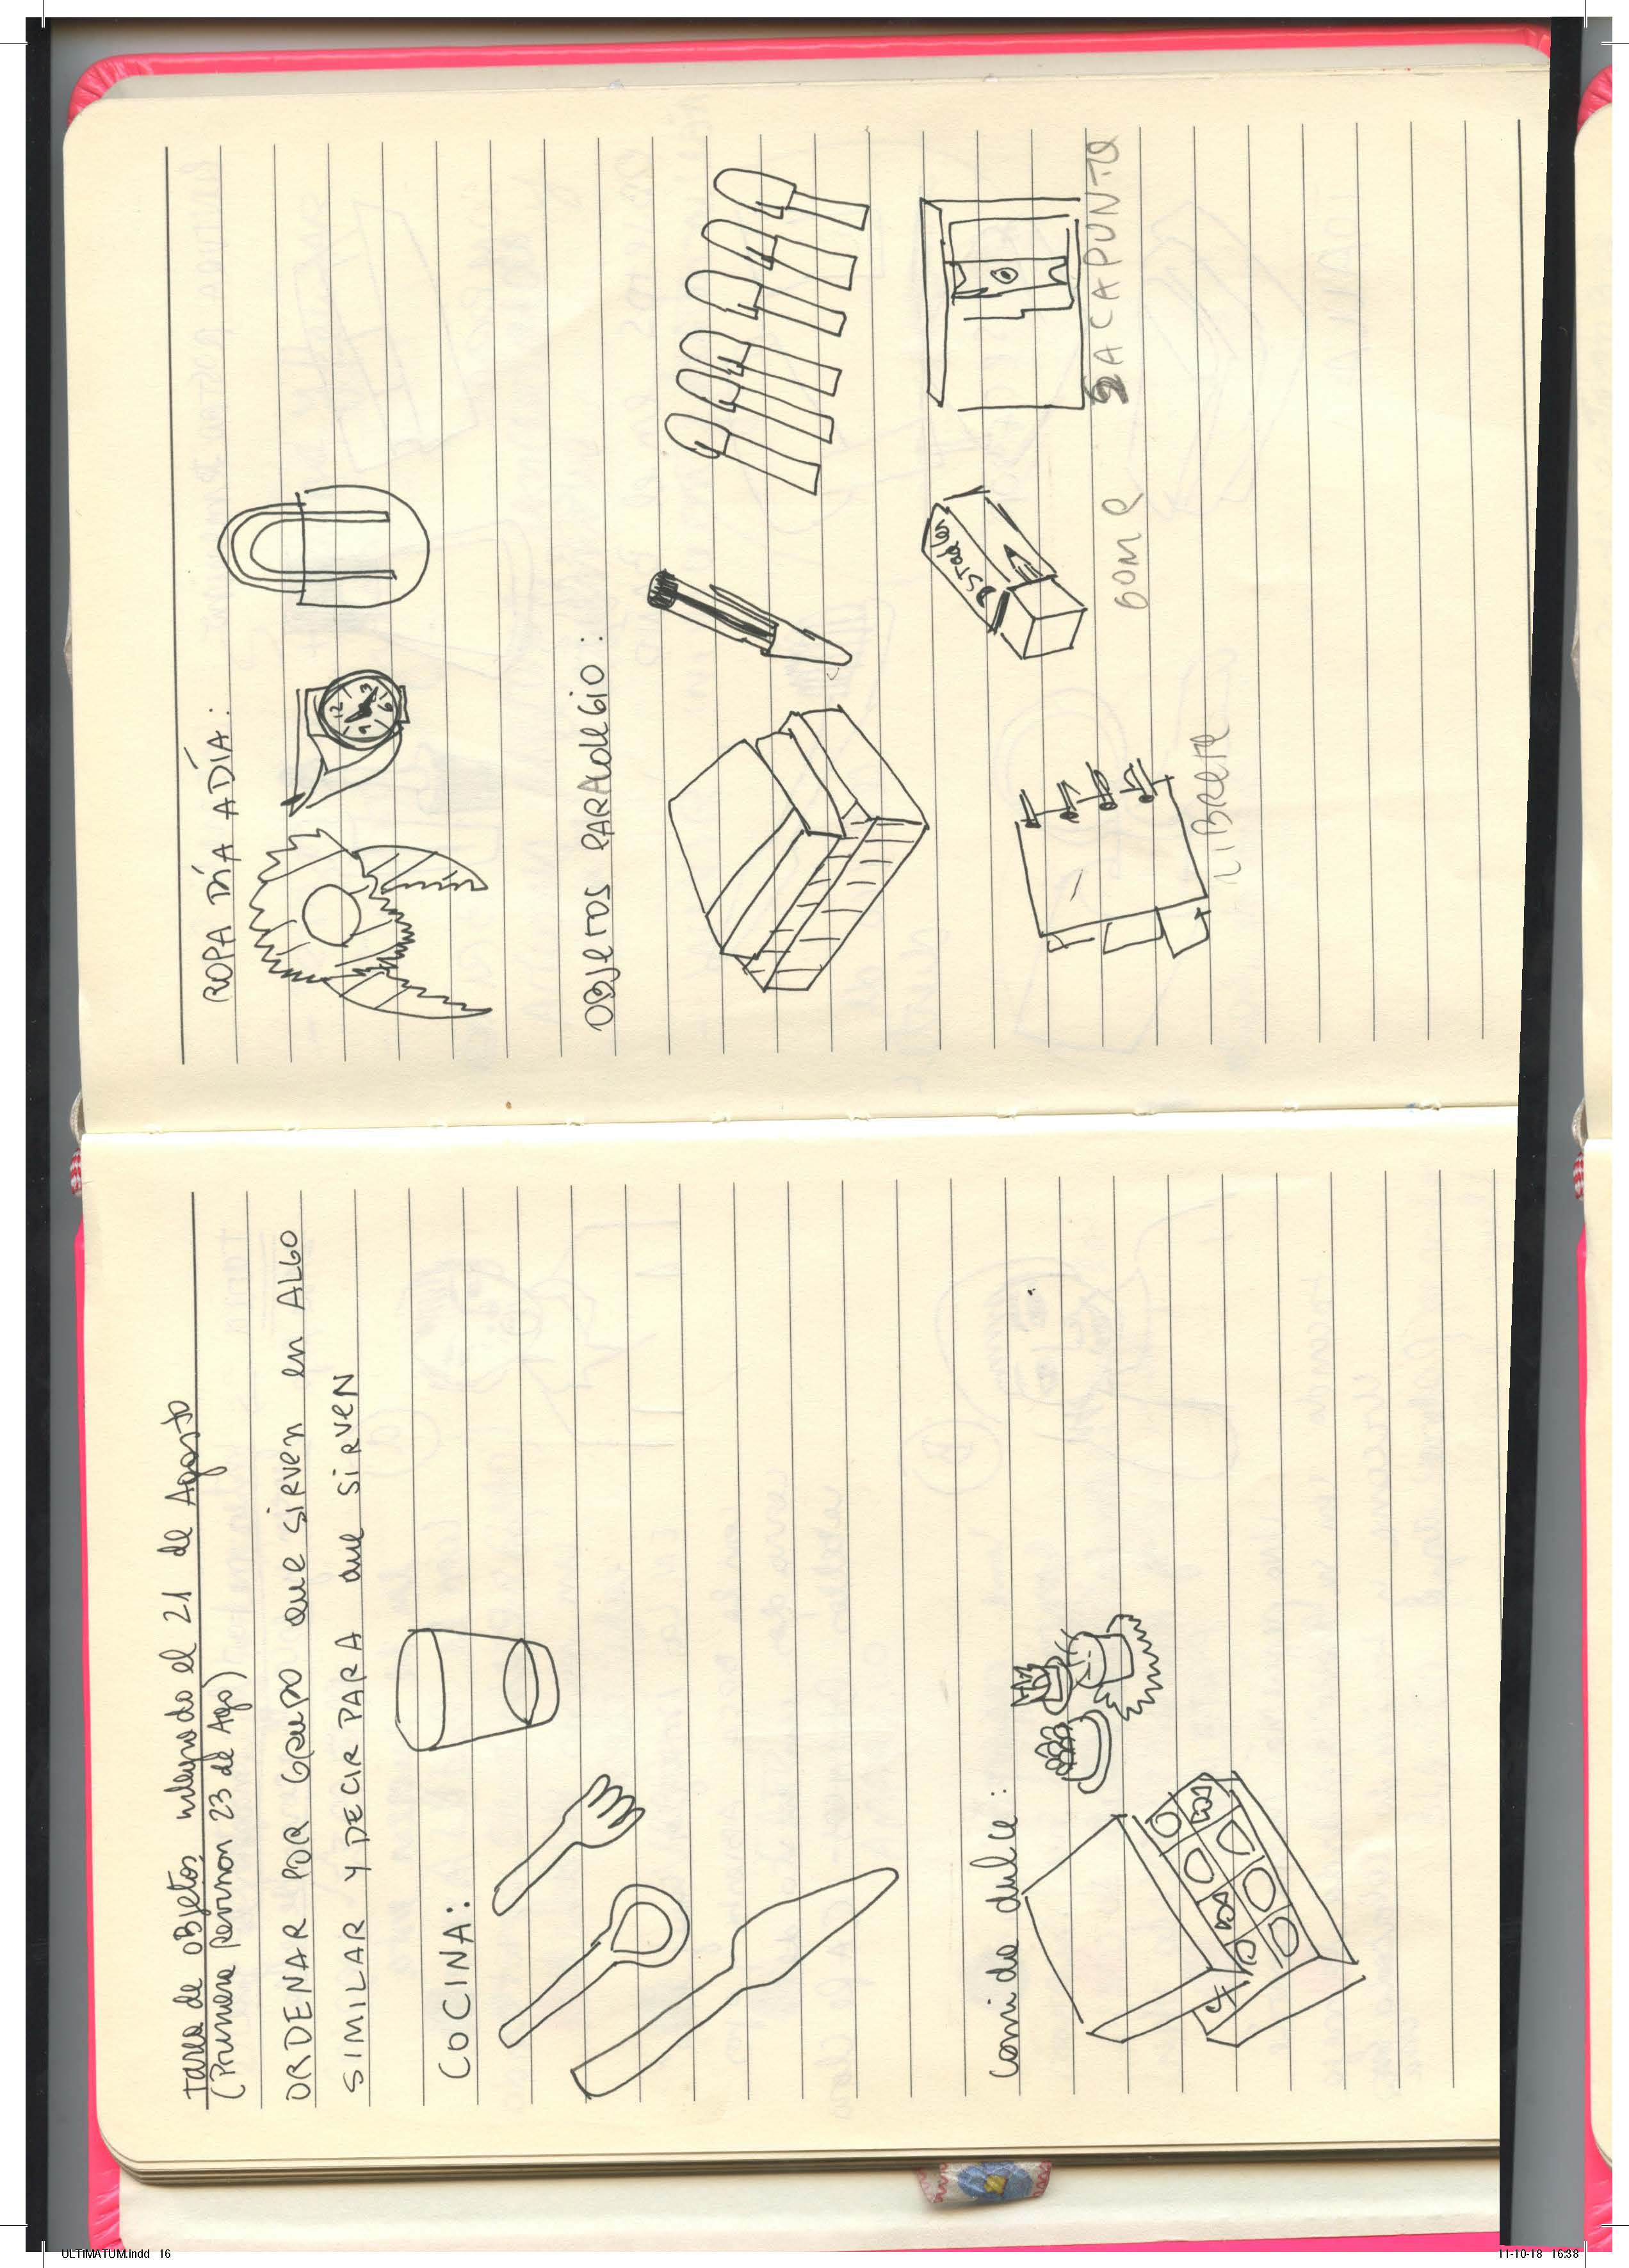 Tarea de objetos, integrado el 21 de Agosto
(Primera revision 23 de Ago)
ORDENAR POR GRUPO que SIRVEN en ALGO
SIMILAR Y DECIR PARA que SIRVEN
COCINA:
comida dulce:
ROPA DÍA A DÍA:
12
3
6
OBJETOS PARA COLEGIO:
LIBRETA
GOMA
SACAPUNTA
ULTIMATUM.indd 16
11-10-18 16:38